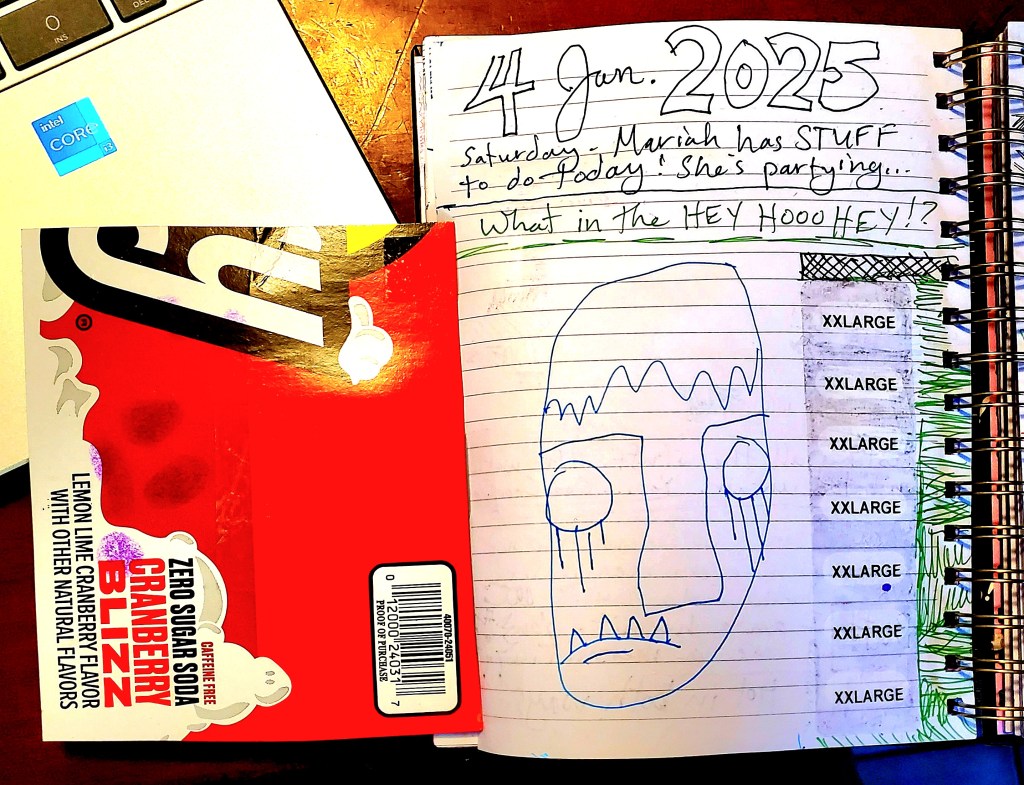 0
INS
DEL
intel
CORE
i3
4 Jan. 2025
Saturday - Mariah has STUFF
to do today! She's partying...
What in the HEY HOOO HEY!?
XXLARGE
XXLARGE
XXLARGE
XXLARGE
XXLARGE
XXLARGE
XXLARGE
®
CAFFEINE FREE
ZERO SUGAR SODA
CRANBERRY
BLIZZ
LEMON LIME CRANBERRY FLAVOR
WITH OTHER NATURAL FLAVORS
40070-24051
0 12000 24031 7
PROOF OF PURCHASE